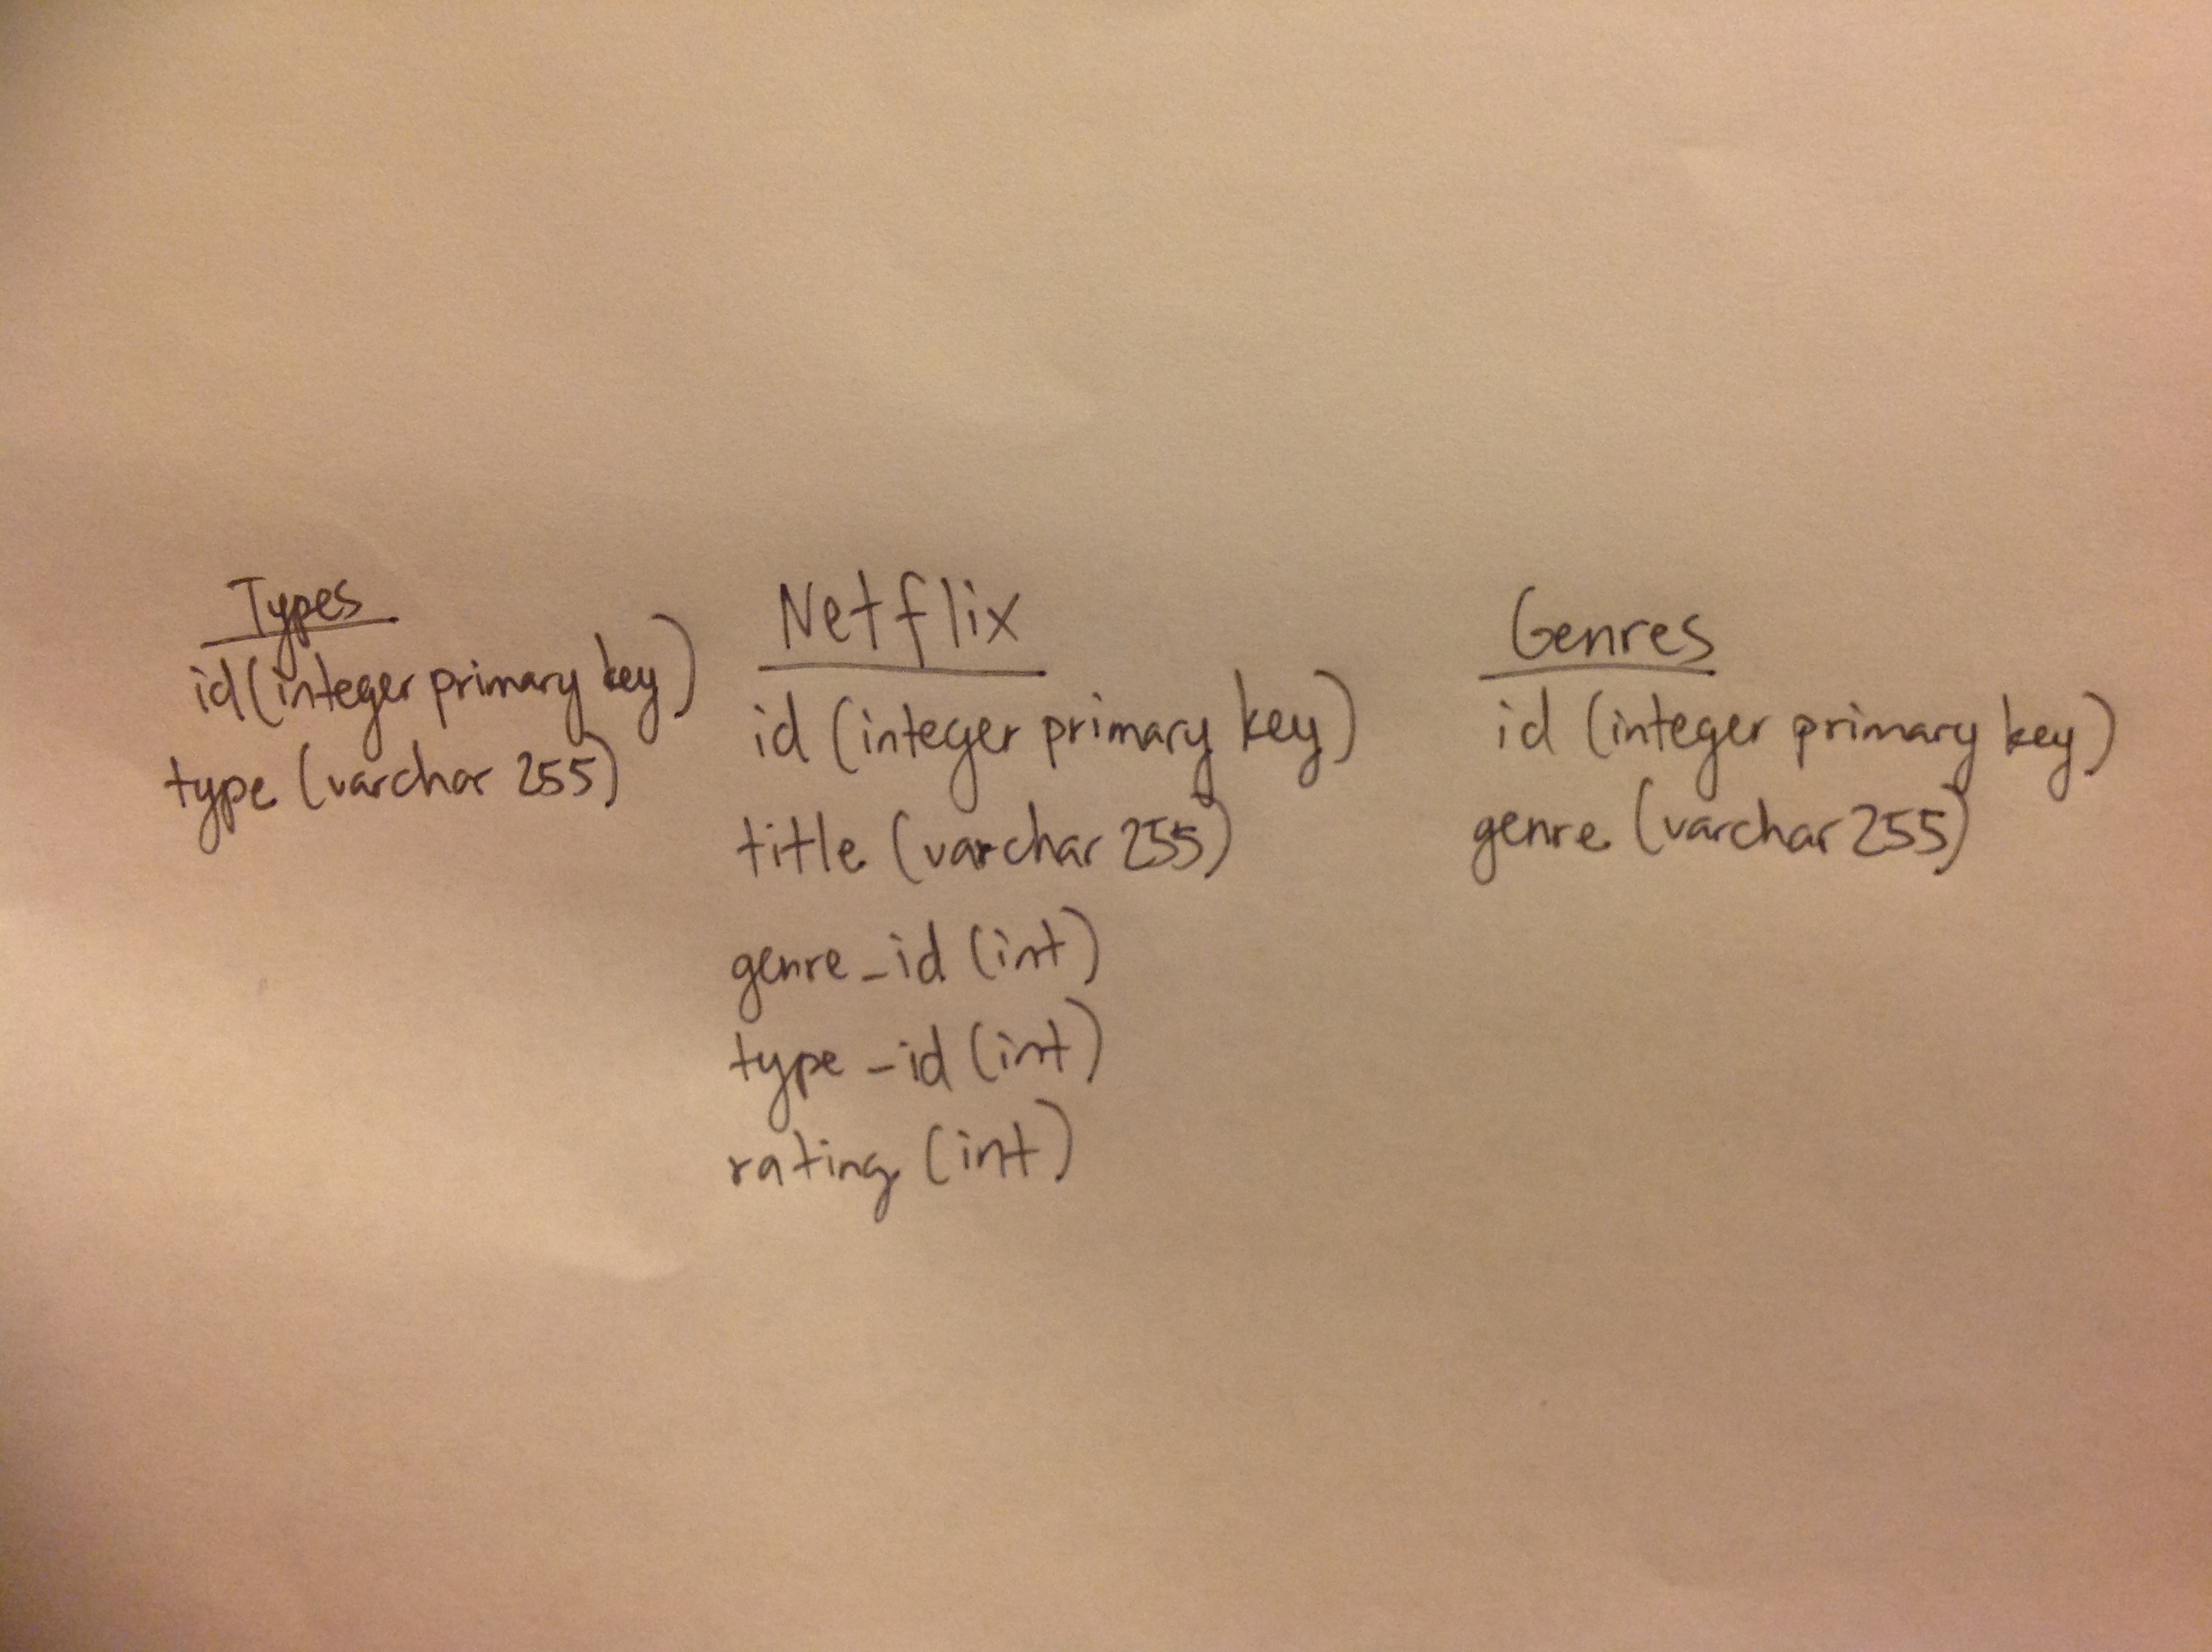 Types
id (integer primary key)
type (varchar 255)
Netflix
id (integer primary key)
title (varchar 255)
genre_id (int)
type_id (int)
rating (int)
Genres
id (integer primary key)
genre (varchar 255)